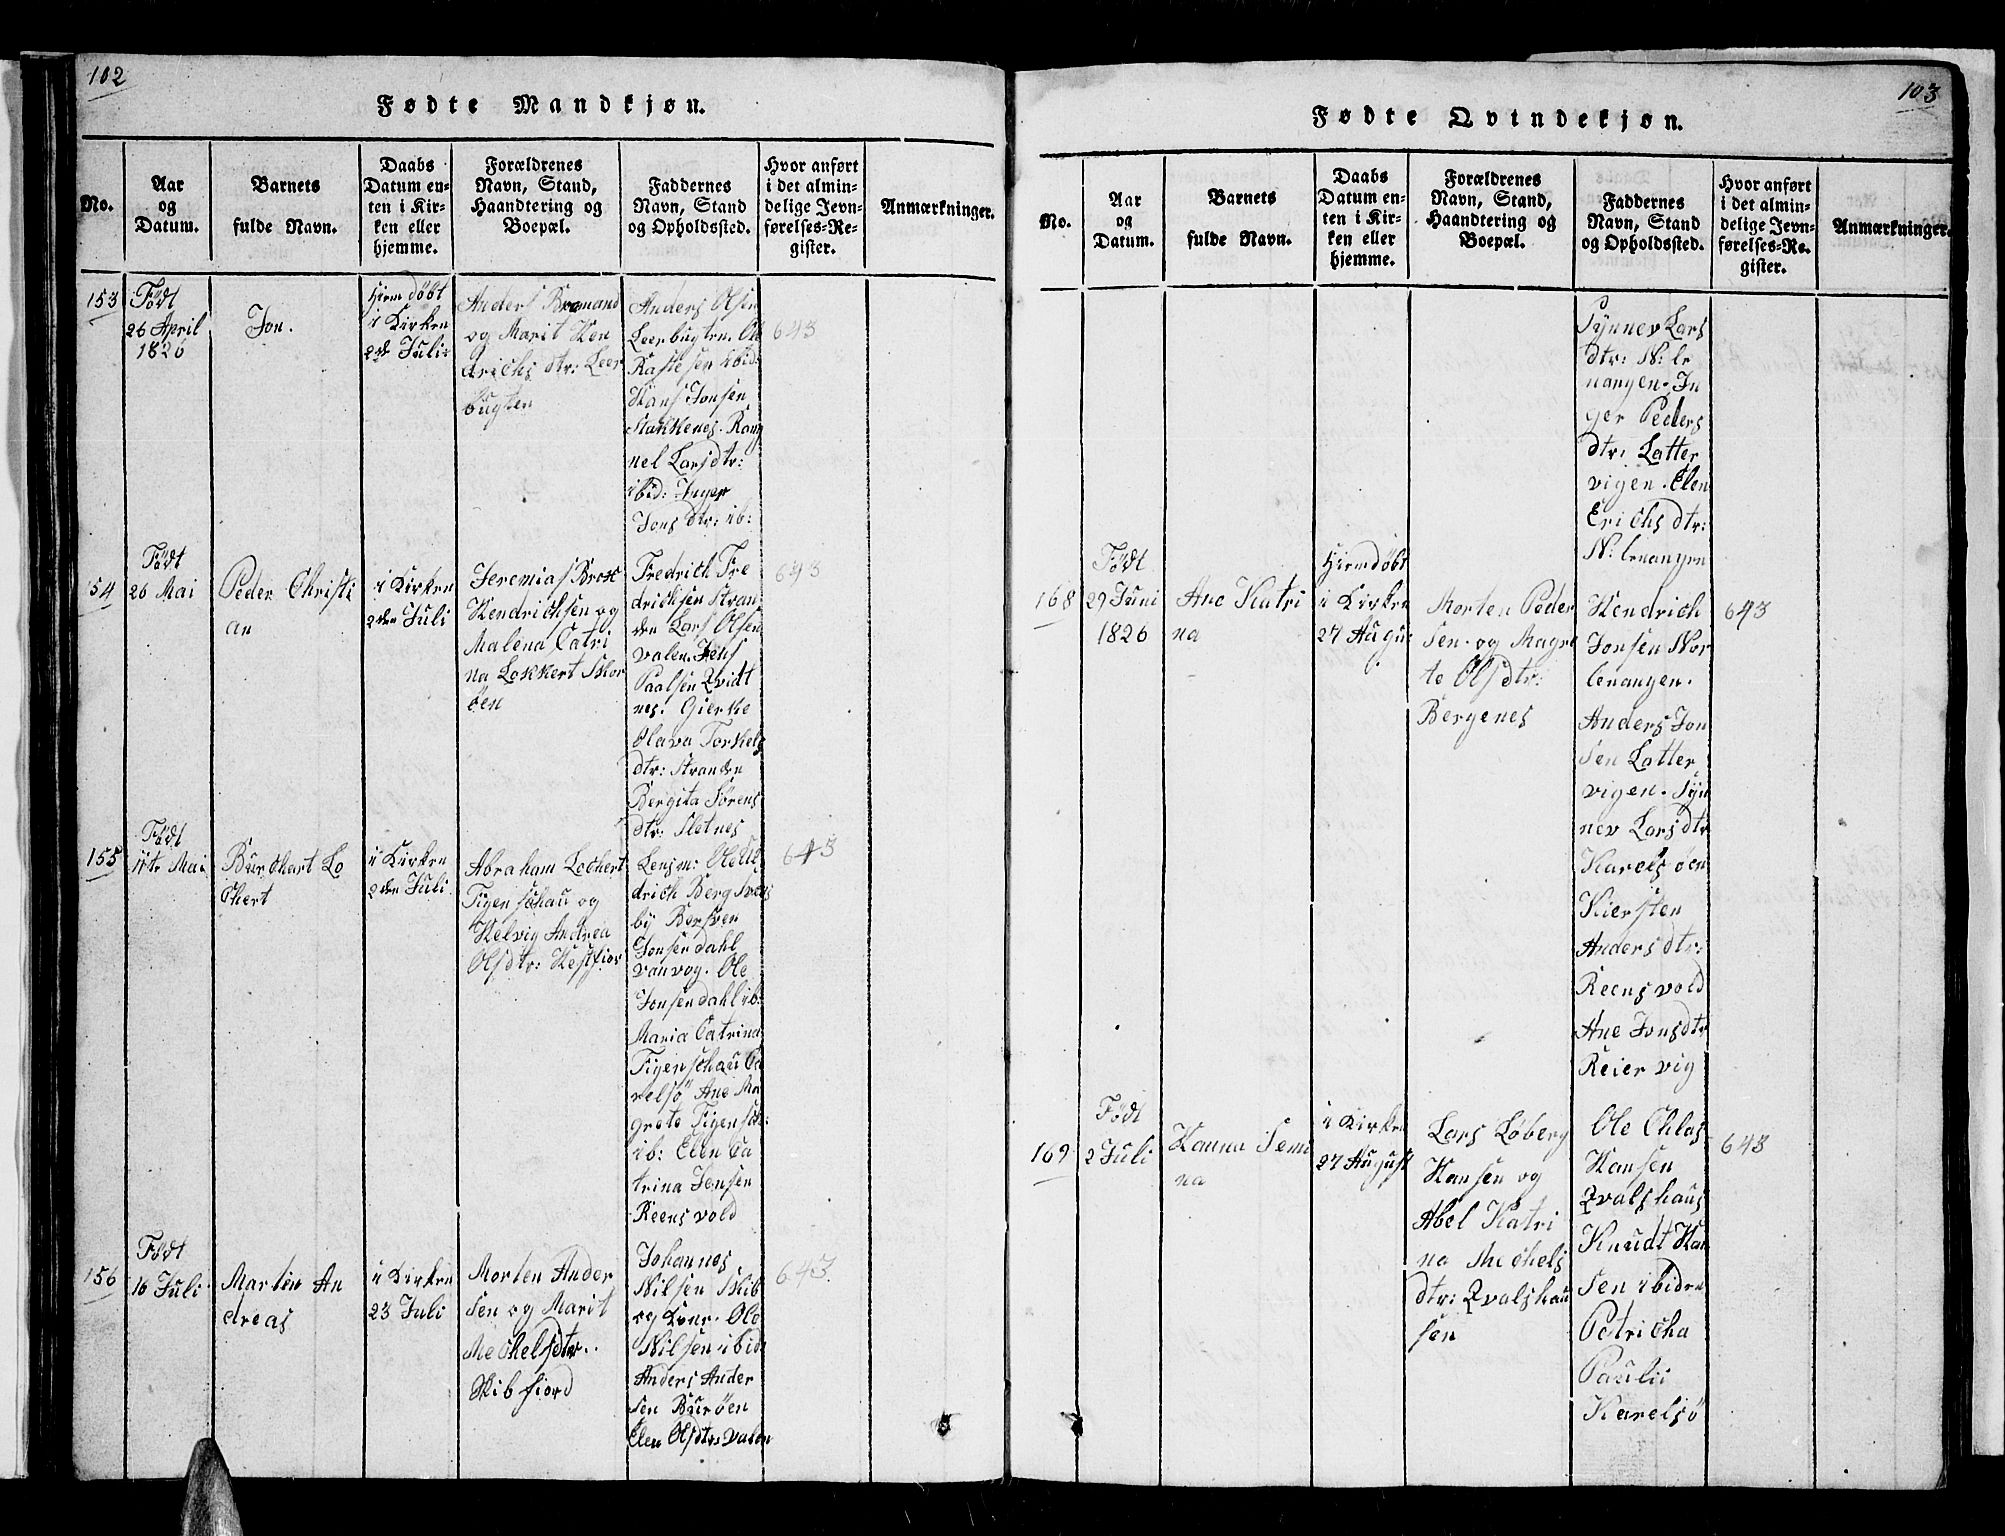 102
Fødte Mandkjøn.
No.
Aar
og
Datum.
Barnets
fulde Navn.
Daabs
Datum en-
ten i Kir-
ken eller
hjemme.
Forældrenes
Navn, Stand,
Haandtering og
Boepæl.
Faddernes
Navn, Stand
og Opholdssted.
Hvor anført
i det almin-
delige Jevn-
førelses-Re-
gister.
Anmærkninger.
153
Födt
26 April
1826
Jon.
Hiemdöbt
i Kirken
2de Juli
Anders Bromand
og Marit Hen
drichs dtr: Leer
bugten
Anders Olsen
Leerbugten. Ole
Rastesen ibid:
Hans Jonsen
Stakkenes. Rang
nel Larsdtr:
ibid: Inger
Jons dtr: ib:
643
154
Födt
26 Mai
Peder Christi
an
i Kirken
2den Juli
Jeremias Brox
Hendrichsen og
Malena Catri
na Lokkert Skor
öen
Fredrich Fre
drichsen Stran
den Lars Olsen
Valen. Jens
Paalsen Qvidt
nes. Gierke
Olava Torkels
dtr: Stranden
Bergita Sörens
dtr: Sletnes
643
155
Födt
11te Mai
Burchart Lo
chert
i Kirken
2den Juli
Abraham Lochert
Figenschau og
Helvig Andrea
Olsdtr: Hessfior
Lensm: Ole Ul
drich Berg Svens
by Bersven
Jonsen dahl
vanvog. Ole
Jonsen dahl ib:
Maria Catrina
Figenschau Ca
relsö Ane Mar
grete Figensch:
ib: Elen Ca
trina Jensen
Reensvold
643
156
Födt
16 Juli
Marten An
dreas
i Kirken
23 Juli
Morten Ander
sen og Marit
Mechelsdtr.
Skibfiord
Johannes
Nilsen Skib
og Kone. Ole
Nilsen ibidn
Anders Ander
sen Buröen
Elen Olsdtr: Valen
643.
103
Fødte Qvindekjøn.
No.
Aar
og
Datum.
Barnets
fulde Navn.
Daabs
Datum en-
ten i Kir-
ken eller
hjemme.
Forældrenes
Navn, Stand,
Haandtering og
Boepæl.
Faddernes
Navn, Stand
og Opholdssted.
Hvor anført
i det almin-
delige Jevn-
førelses-Re-
gister.
Anmærkninger.
Synnev Lars
dtr: N: le
nangen. In
ger Peders
dtr: Latter
vigen. Elen
Erichs dtr:
N: lenangen
168
Födt
29 Juni
1826
Ane Katri
na
Hiemdöbt
i Kirken
27 Augu:
Morten Peder
sen. og Magre
te Olsdtr:
Bergenes
Hendrich
Jonsen Nor
lenangen.
Anders Jon
sen Latter
vigen. Syn
nev Lars dtr
Karelsöen
Kiersten
Anders dtr:
Reensvold
Ane Jonsdtr
Reiervig
643
169
Födt
2 Juli
Hanna Semi
na
i Kirken
27 August
Lars Löberg
Hansen og
Abel Katri
na Mechels
dtr: Qvalshau
sen
Ole Chlas
Hansen
Qvalshaus
Knudt Han
sen ibidn
Petricha
Pauli
Karelsö
643